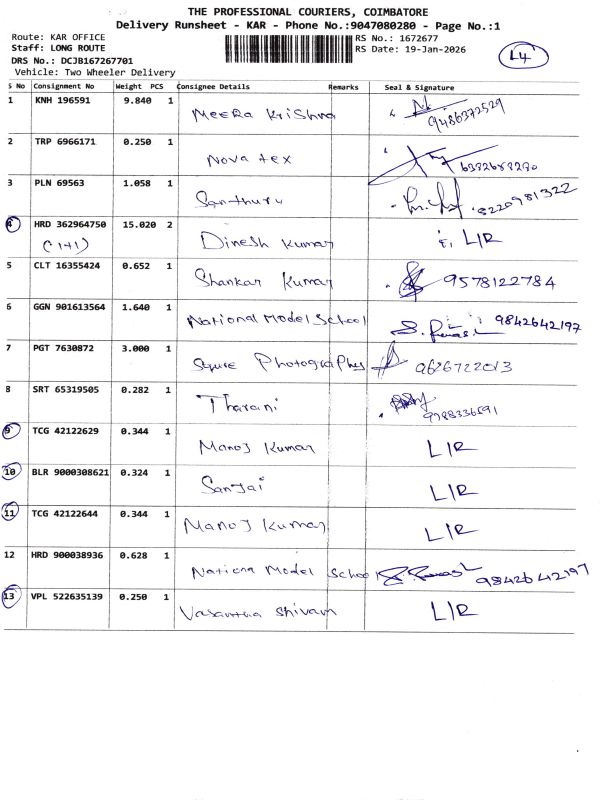 THE PROFESSIONAL COURIERS, COIMBATORE
Delivery Runsheet - KAR - Phone No.:9047080280 - Page No.:1
Route: KAR OFFICE
Staff: LONG ROUTE
DRS No.: DCJB167267701
Vehicle: Two Wheeler Delivery
RS No.: 1672677
RS Date: 19-Jan-2026
L4
S No Consignment No Weight PCS Consignee Details Remarks Seal & Signature
1 KNH 196591 9.840 1 Meera Krishna 9486372529
2 TRP 6966171 0.250 1 Nova tex
3 PLN 69563 1.058 1 Santhuru 8220981322
4 HRD 362964750 15.020 2 Dinesh Kumar L/R
(1+1)
5 CLT 16355424 0.652 1 Shankar Kumar 9578122784
6 GGN 901613564 1.640 1 National Model School 9842642197
7 PGT 7630872 3.000 1 Squre Photography 9626722013
8 SRT 65319505 0.282 1 Tharani 9788336591
9 TCG 42122629 0.344 1 Manoj Kumar L/R
10 BLR 9000308621 0.324 1 Sanjai L/R
11 TCG 42122644 0.344 1 Manoj Kumar L/R
12 HRD 900038936 0.628 1 Nationa Model School 9842642197
13 VPL 522635139 0.250 1 Vasantha Shivam L/R